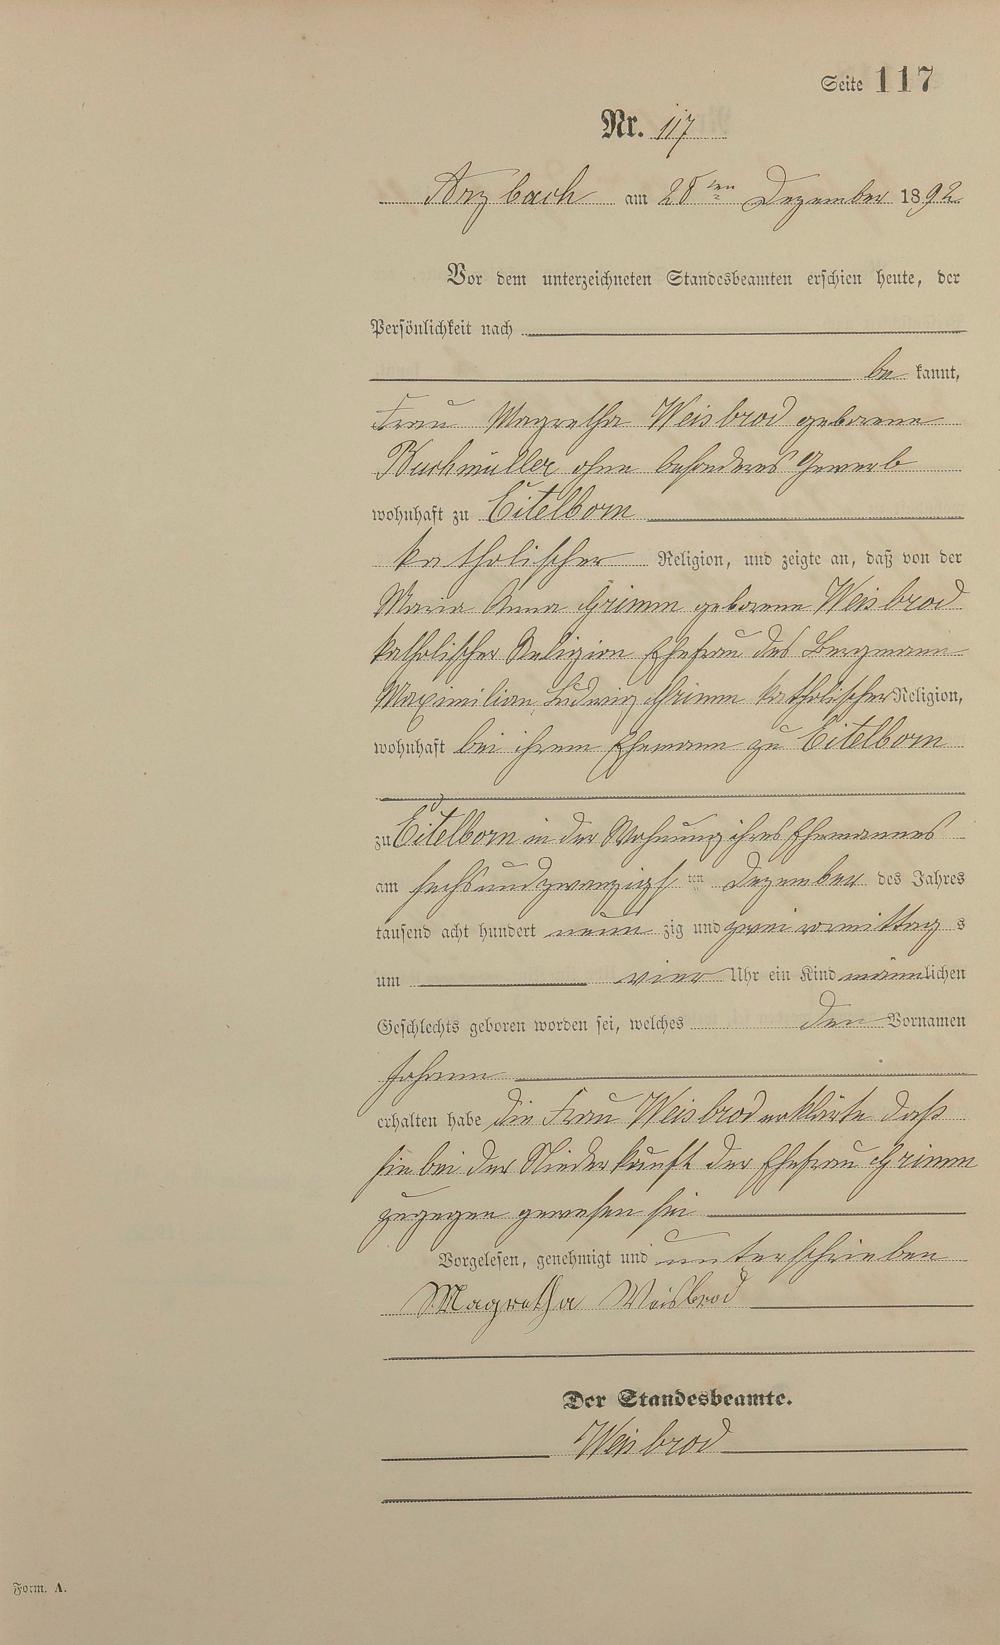 Seite 117
Nr. 117
Arzbach am 28ten Dezember 1892
Vor dem unterzeichneten Standesbeamten erschien heute, der
Persönlichkeit nach
be kannt,
Frau Magretha Weisbrod geborene
Buchmüller ohne besonderes Gewerb
wohnhaft zu Eitelborn
katholischer Religion, und zeigte an, daß von der
Maria Anna Grimm geborene Weisbrod
katholischer Religion Ehefrau des Bergmann
Maximilian Ludwig Grimm katholischer Religion,
wohnhaft bei ihrem Ehemann zu Eitelborn
zu Eitelborn in der Wohnung ihres Ehemannes
am sechsundzwanzigsten Dezember des Jahres
tausend acht hundert neun zig und zwei vormittag s
um vier Uhr ein Kind männlichen
Geschlechts geboren worden sei, welches den Vornamen
Johann
erhalten habe die Frau Weisbrod erklärte daß
sie bei der Niederkunft der Ehefrau Grimm
zugegen gewesen sei
Vorgelesen, genehmigt und unterschrieben
Magretha Weisbrod
Der Standesbeamte.
Weisbrod
Form. A.